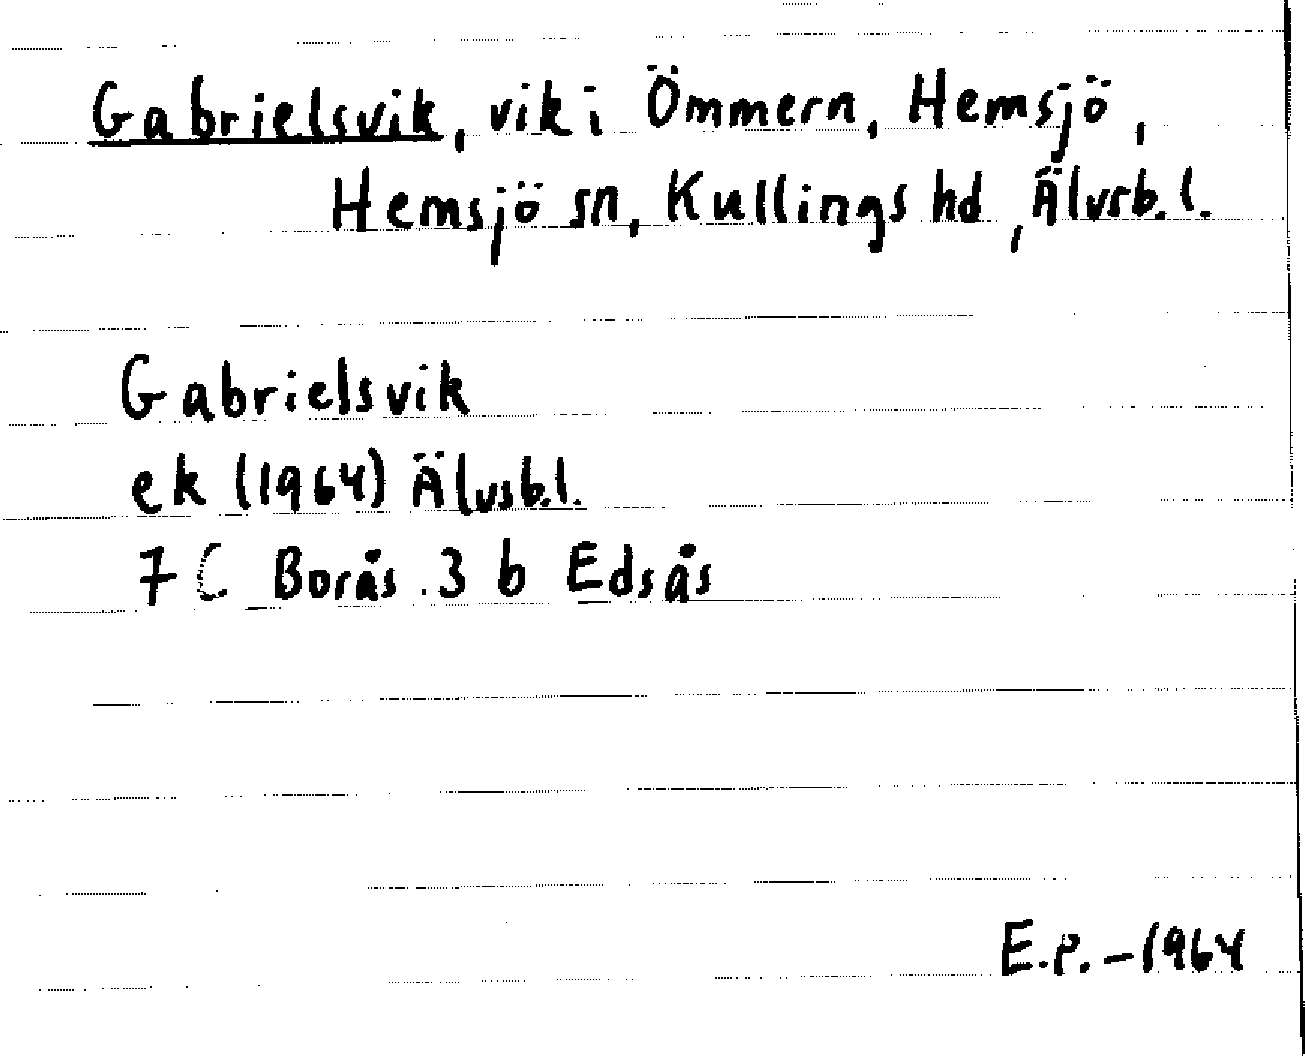 Gabrielsvik, vik i Ömmern, Hemsjö,
Hemsjö sn, Kullings hd, Älvsb. l.
Gabrielsvik
ek (1964) Älvsb. l.
7 C Borås . 3 b Edsås
E.P. - 1964